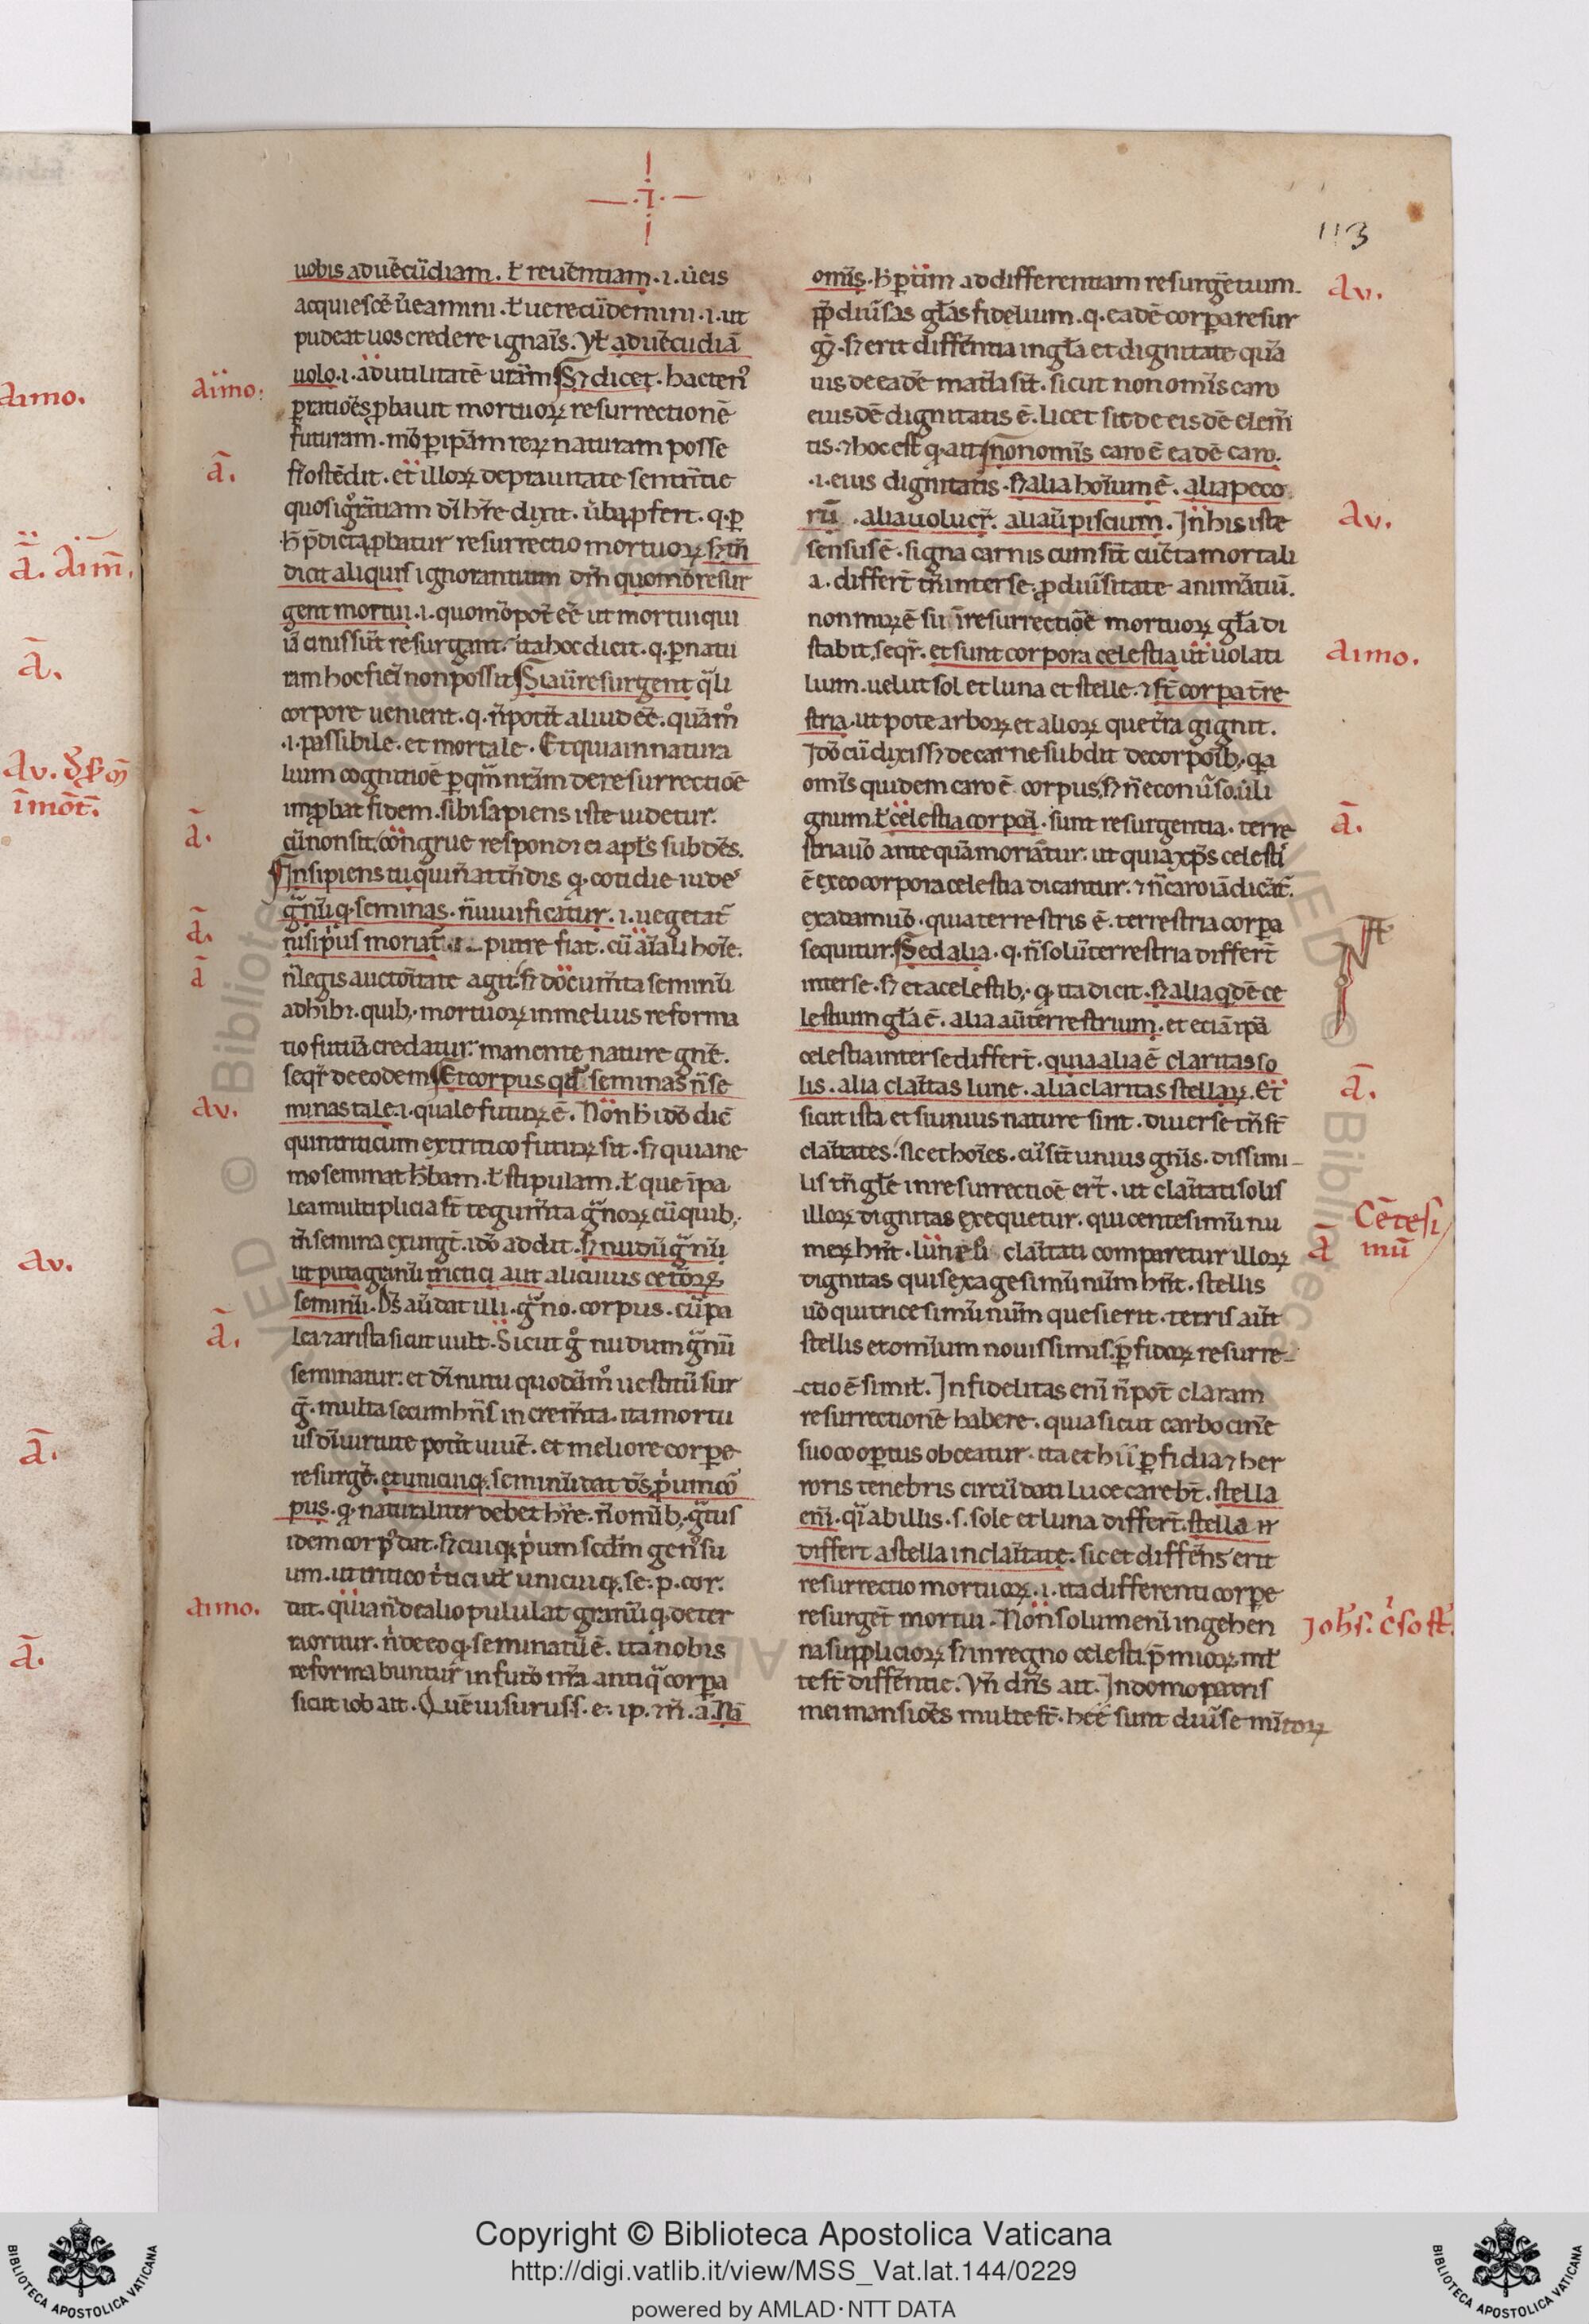 ·I·
113
uobis aduēcūdiam. ł reuēntiam.i. ūeis
acquiescē ūeamini.ł uerecūdemini.i.ut
pudeat uos credere ignaīs. Vł aduēcūdiā
uolo.i. ad utilitatē urām Sꝫ dicet. hacten᷒
ꝑ ratiōēs ꝓbauit mortuoꝝ resurrectionē
futuram. mō ꝑ ipām reꝝ naturam posse
fīi ostēdit. et illoꝝ deprauitate sentītie
ħ p̄dicta ꝓbatur resurrectio mortuoꝝ sꝫ tn̄
dicit aliquis ignorantium dīm quomō resur
gent mortui.i. quomō pot̄ ēē ut mortui qui
iā cinis sūt resurgant. ita hoc dicit. q. ꝑ natu
ram hoc fieī non possit Si aūt resurgent q̄li
corpore uenient. q. n̄ potit̄ aliud ēē. quāmͦ
.i. passibile. et mortale. Et quia in natura
lium cognitiōē ꝑ qm̄ nrām de resurrectiōē
imꝓbat fidem. sibi sapiens iste uidetur.
cū non sit. cōngrue respondꝫ ei apłs subdēs.
Insipiens tu qui n̄ attn̄dis qꝫ cotidie uides
g̃nū qꝫ seminas. n̄ uiuificatur. i. uegetat̄
nisi p̄us moriat̄.i. putrefiat. cū aīali hoīe.
n̄ legis auctōītate agit. sꝫ docum̄ta seminū
adhibꝫ. quibꝫ mortuoꝝ in melius reforma
tio futūa credatur. manente nature gn̄e.
seqr̄ de eodem Et corpus qđ seminas n̄ se
minas tale.i. quale futuꝝ ē. Non ħ idō dic̄
quin triticum ex tritico futuꝝ sit. sꝫ quia ne
mo seminat hr̄bam. ł stipulam. ł que ī pa
lea multiplicia st̄ tegum̄ta g̃noꝝ cū quibꝫ
tn̄ semina exurgt̄. idō addit. sꝫ nudū g̃nū
ut puta granū tritici aut alicuius cet̄oꝝ
seminū. Dꝰ aū dat illi. g̃no. corpus. cū pa
lea ꝫ arista sicut uult. Sicut gͦ nudum g̃nū
seminatur. et dī nutu quodāmͦ uestitū sur
ḡ. multa secum hn̄s increm̄ta. ita mortu
us dī uirtute potit̄ uiuē. et meliore corꝑe
resurgē. et unicuiqꝫ seminū dat dꝰ ꝓprium cor̄
pus. qꝫ naturaliter debet hr̄e. n̄ omībꝫ g̃tus
idem corpꝰ dat. sꝫ cuiqꝫ ꝓprium scd̄m genꝰ su
um. ut tritico tīticī uł unicuiqꝫ. se. p. cor.
dat. quia n̄ de alio pululat granū qꝫ deter
moritur. n̄ de eo qꝫ seminatū ē. ita nobis
reformabuntur in futo nr̄a antiq̃ corpa
sicut iob ait. Quē uisurus s. e. ip. m̄. ā. Nā
omīs. ħ ꝑtim ad differentiam resurgētium.
pp̄ diūsas głas fidelium. q. eadē corpa resur
gꝫ. sꝫ erit diffētia in gła et dignitate quā
uis de eadē matīa sit̄. sicut non omīs caro
eiusdē dignitatis ē. licet sit de eisdē elem̄
tis. ꝫ hoc est qꝫ ait non omīs caro ē eadē caro.
.i. eius dignitatis. sꝫ alia hoīum ē. alia peco
rū. alia uolucr̄. alia aū pisciūm. In his iste
sensus ē. signa carnis cum sīt cūcta mortali
a. differt̄ tn̄ inter se. ꝓ diūsitate animātiū.
non miꝝ ē si ī resurrectiōē mortuoꝝ gła di
stabit. seqr̄. et sunt corpora celestia ut uolati
lium. uelut sol et luna et stelle. ꝫ st̄ corpa tr̄re
stria. ut pote arboꝝ et alioꝝ que tr̄ra gignit.
Idō cū dixissꝫ de carne subdit de corpoībꝫ qa
omīs quidem caro ē corpus. sꝫ n̄ econūso. ūli
gnum. ł celestia corpoā. sunt resurgentia. terre
stria uō antequā moriātur. ut quia xp̄s celesti
ē ex eo corpora celestia dicantur. ꝫ n̄ caro iā dicāt̄.
ex adam uō. quia terrestris ē. terrestria corpa
sequitur. Sed alia. q. n̄ solū terrestria differt̄
inter se. sꝫ et a celestibꝫ. qꝫ ita dicit. sꝫ alia qdē ce
lestium gła ē. alia aūt terrestrium. et etiā ipā
celestia inter se differt̄. quia alia ē claritas so
lis. alia clarītas lune. alia claritas stellaꝝ. Et
sicut ista et si unius nature sint. diuerse tn̄ st̄
clarītates. sic et hoīes. cū sīt unius gn̄is. dissimi
lis tn̄ głe in resurrectiōē ert̄. ut clarītati solis
illoꝝ dignitas exequetur. qui centesimū nu
meꝝ hn̄t. clarītati comparetur illoꝝ
dignitas qui sexagesimū nūm hn̄t. stellis
uō qui tricesimū nūm quesierit. tetris aūt
stellis et omīum nouissimis. ꝑfidoꝝ resurre
ctio ē simīł. Infidelitas enī n̄ pot̄ claram
resurrectionē habere. quia sicut carbo cinē
suo coopertus obceatur. ita et hii ꝑfidia ꝫ her
roris tenebris circūdati luce carebt̄. stella
enī. qī ab illis. s. sole et luna differt̄. stella
differt a stella in clarītate. sic et diffēns erit
resurrectio mortuoꝝ.i. ita differenti corꝑe
resurgēt mortui. Non solum enī in gehen
na suppliciorꝝ sꝫ in regno celesti p̄mioꝝ mł
te st̄ diffēntie. Vn̄ dn̄s ait. In domo patris
mei mansiōēs multe st̄. hēc sunt diūse mītoꝝ
aimo.
ā.
ā.
ā.
ā
av.
ā.
aimo.
av.
av.
aimo.
ā.
ā.
Cētesi
mū
ā
Johs. c̄sost.
aimo.
ā. aim̄.
ā.
av.
īmōt̄.
av.
ā.
ā.
© Biblioteca Apostolica Vaticana
Copyright © Biblioteca Apostolica Vaticana
http://digi.vatlib.it/view/MSS_Vat.lat.144/0229
powered by AMLAD·NTT DATA
BIBLIOTECA APOSTOLICA VATICANA
BIBLIOTECA APOSTOLICA VATICANA